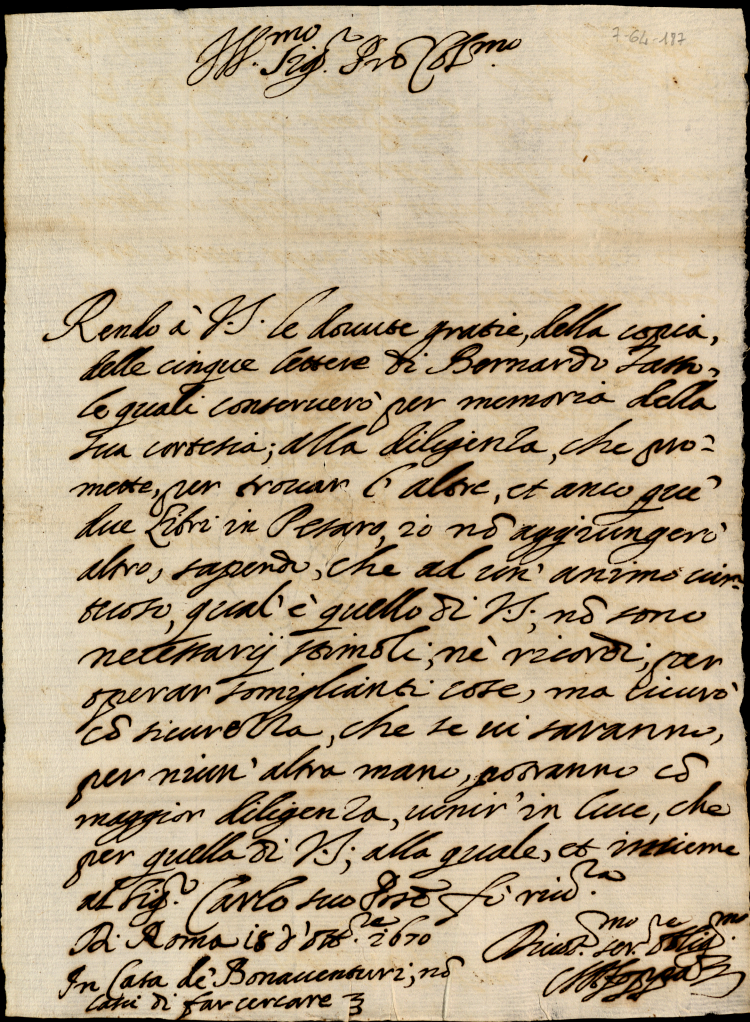 7-64-187
Ill.mo Sig.r P'rõ Col.mo
Rendo à V.S. le douute gratie, della copia,
delle cinque lettere di Bernardo Tasso,
le quali conseruerò per memoria della
sua cortesia; alla diligenza, che pro=
mette, per trouar l'altre, et anco que'
due Libri in Pesaro, io nõ aggiungerò
altro, sapendo, che ad un' animo uir=
tuoso, qual'è quello di V.S., nõ sono
necessarij stimoli, nè ricordi, per
operar somiglianti cose, ma uiurò
cõ sicurezza, che se ui saranno,
per niun' altra mano, potranno cõ
maggior diligenza, uenir' in luce, che
per quella di V.S; alla quale, et insieme
al Sig.r Carlo suo fò riu.a
Di Roma 18 d'ott.e 1670
Diuot.mo ser.re oblig.mo
In Casa de' Bonauenturi, nõ
di far cercare